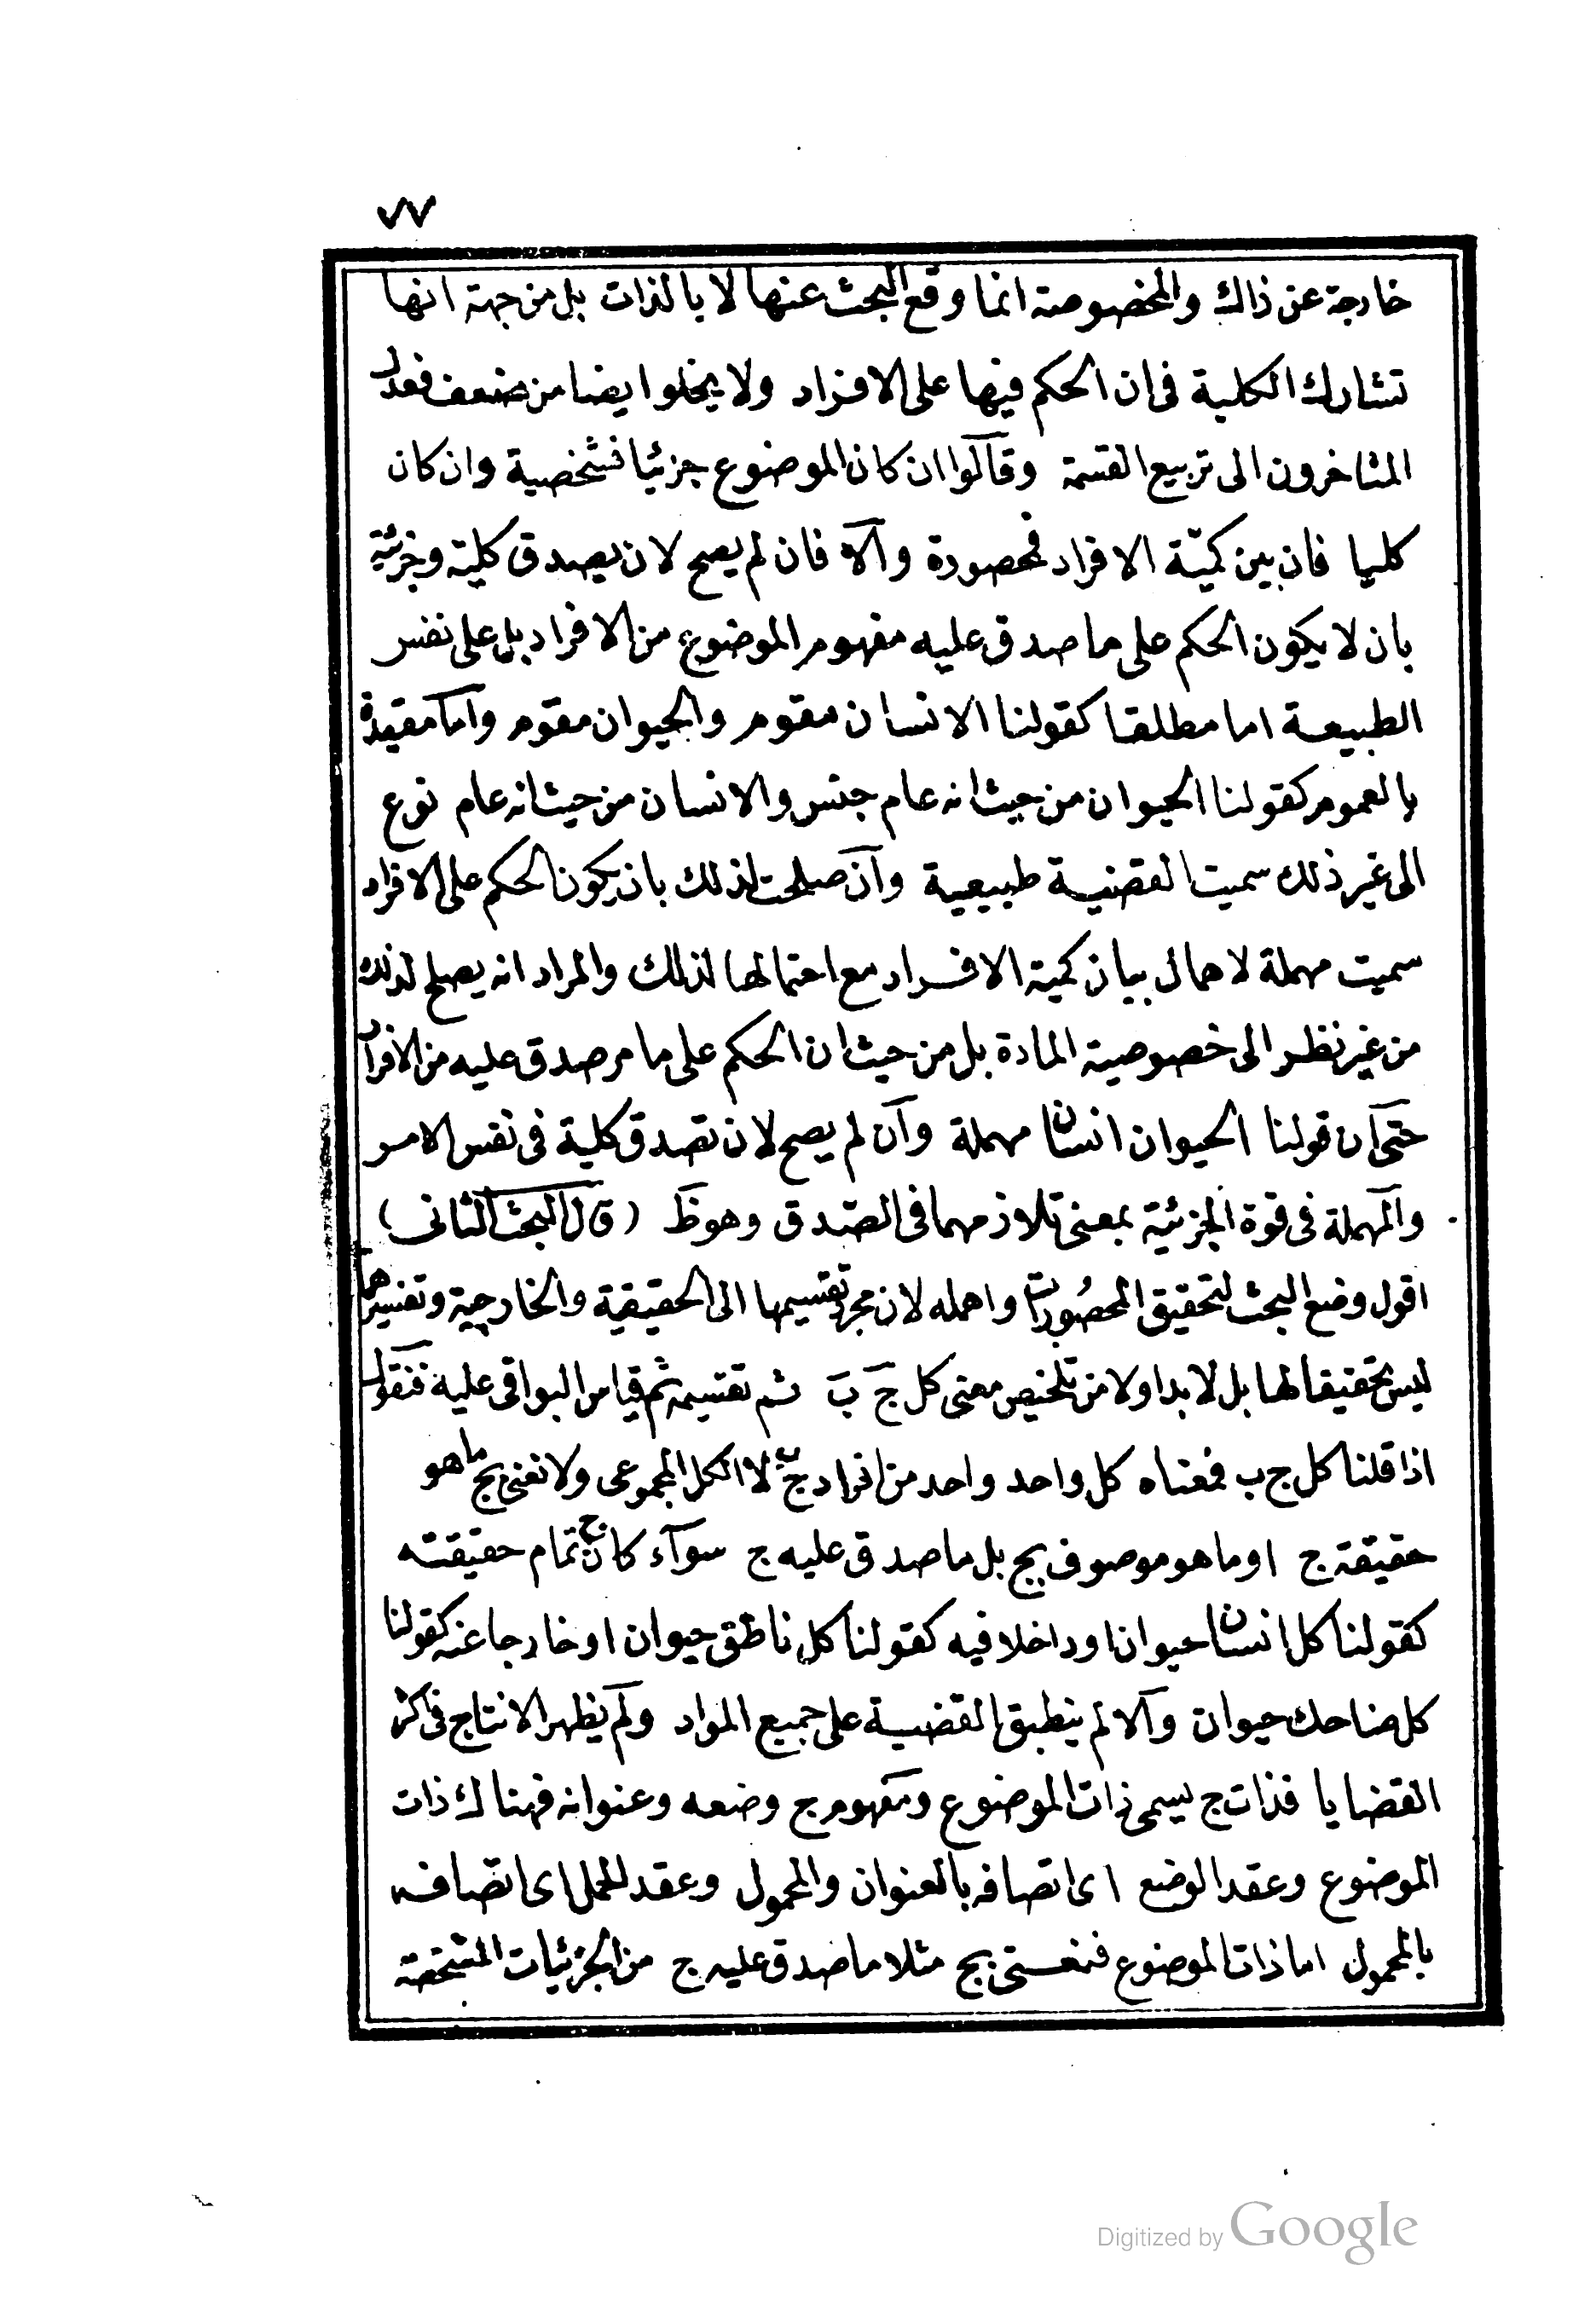 ٧٧
خارجة عن ذلك والمخصوصة انما وقع البحث عنها لا بالذات بل من جهة انها
تشارك الكلية فى ان الحكم فيها على الافراد ولا يخلوا يضا من ضعف فعدل
المتاخرون الى تربيع القسمة وقالوا ان كان الموضوع جزئيا فشخصية وان كان
كليا فان بين كميّة الافراد فمحصورة والا فان لم يصح لان يصدق كلية وجزئية
بان لا يكون الحكم على ما صدق عليه مفهوم الموضوع من الافراد بل على نفس
الطبيعة اما مطلقا كقولنا الانسان مقوم والحيوان مقوم واما مقيدة
بالعموم كقولنا الحيوان من حيث انه عام جنس والانسان من حيث انه عام نوع
الى غير ذلك سميت القضية طبيعية وان صلحت لذلك بان يكون الحكم على الافراد
سميت مهملة لاهمال بيان كمية الافراد مع احتمالها لذلك والمراد انه يصلح لذلك
من غير نظر الى خصوصية المادة بل من حيث ان الحكم على ما مر صدق عليه من الافراد
حتى ان قولنا الحيوان انسان مهملة وان لم يصح لان تصدق كلية فى نفس الامر
والمهملة فى قوة الجزئية بمعنى تلازمهما فى الصّدق وهو ظ (قال البحث الثانى)
اقول وضع البحث لتحقيق المحصُورات واهمله لان مجرد تقسيمها الى الحقيقية والخارجية وتفسيرهما
ليس تحقيقا لها بل لا بد اولا من تلخيص معنى كل ج ب ثم تقسيمه ثم قياس البواقى عليه فنقول
اذا قلنا كل ج ب فمعناه كل واحد واحد من افراد ج ب لا الكل المجموعى ولا نعنى بج ما هو
حقيقة ج او ما هو موصوف بج بل ما صدق عليه ج سوآء كان ج تمام حقيقته
كقولنا كل انسان حيوان او داخلا فيه كقولنا كل ناطق حيوان او خارجا عنه كقولنا
كل ضاحك حيوان والا لم ينطبق القضية على جميع المواد ولم يظهر الانتاج فى اكثر
القضايا فذات ج يسمى ذات الموضوع ومفهوم ج وضعه وعنوانه فهناك ذات
الموضوع وعقد الوضع اى اتصافه بالعنوان والمحمول وعقد الحمل اى اتصافه
بالمحمول اما ذات الموضوع فنعنى بج مثلا ما صدق عليه ج من الجزئيات المشخصة
Digitized by Google